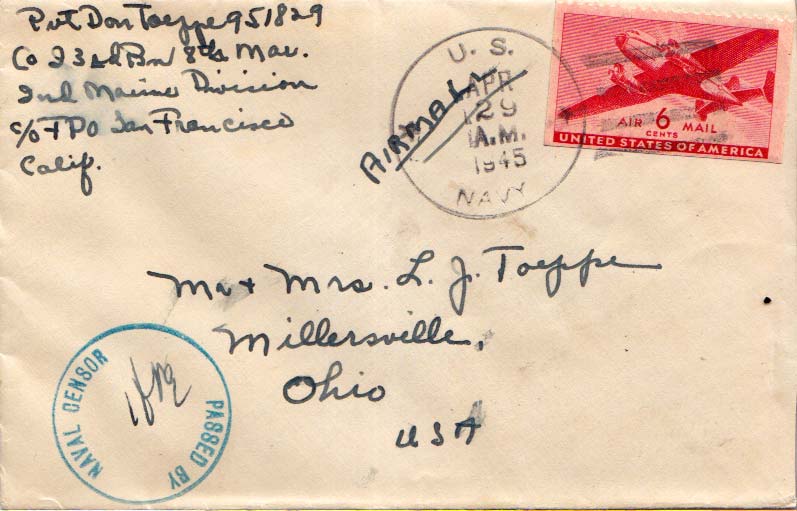 Pvt Don Toeppe 951829
Co I 3rd Bn 8th Mar.
2nd Marine Division
c/o FPO San Francisco
Calif.
AIRMAIL
U. S.
APR
29
A.M.
1945
NAVY
AIR 6 MAIL
CENTS
UNITED STATES OF AMERICA
Mr + Mrs. L. J. Toeppe
Millersville,
Ohio
USA
PASSED BY
NAVAL CENSOR